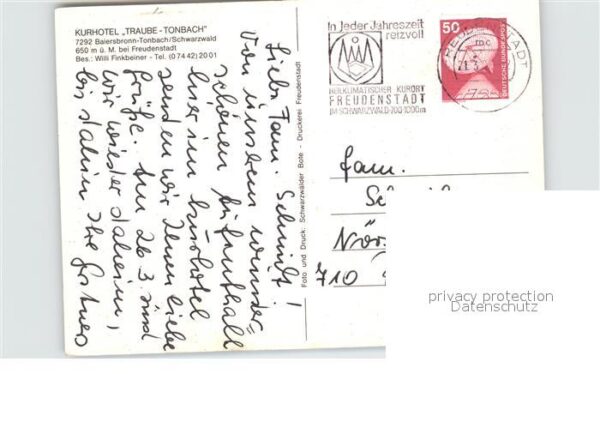 KURHOTEL „TRAUBE-TONBACH"
7292 Baiersbronn-Tonbach/Schwarzwald
650 m ü. M. bei Freudenstadt
Bes.: Willi Finkbeiner - Tel. (0 74 42) 20 01
Liebe Fam. Schmidt!
Von unserem wunder=
schönen Aufenthalt
hier im Kurhotel
senden wir Ihnen liebe
Grüße. Am 26.3. sind
wir wieder daheim,
bis dahin Ihre
Foto und Druck: Schwarzwälder Bote - Druckerei Freudenstadt
In jeder Jahreszeit
reizvoll
HEILKLIMATISCHER KURORT
FREUDENSTADT
IM SCHWARZWALD·700-1000m
50
DEUTSCHE BUNDESPOST
FREUDENSTADT
mc
Fam.
710
privacy protection
Datenschutz